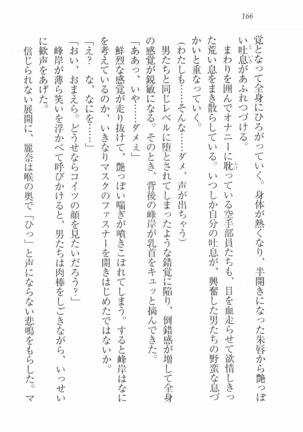 166
覚となって全身にひろがっていく。身体が熱くなり、半開きになった朱唇から艶っぽ
い吐息があふれつづける。
まわりを囲んでオナニーに耽っている空手部員たちも、目を血走らせて欲情しきっ
た荒い息をまき散らしている。いつしか自分の吐息が、興奮した男たちの野蛮な息づ
かいと重なっていく。
（わたしも……そんな……ダメ、声が出ちゃう）
男たちと同じレベルに堕とされてしまったような錯覚に陥り、倒錯感が増して全身
の感覚が鋭敏になる。そのとき、背後の峰岸が乳首をキュッと摘んできた。
「ああっ、いや……ダメぇ」
鮮烈な感覚が走り抜けて、艶っぽい喘ぎが噴きこぼれてしまう。すると峰岸はなに
を考えているのか、いきなりマスクのファスナーを開きはじめたではないか。
「え？　な、なにを……」
「おい、おまえら。どうせならコイツの顔を見たいだろう？」
峰岸が薄ら笑いを浮かべて呼びかけると、男たちは肉棒をしごきながら、いっせい
に歓声をあげた。
信じられない展開に、麗奈は喉の奥で「ひっ」と声にならない悲鳴をもらした。マ